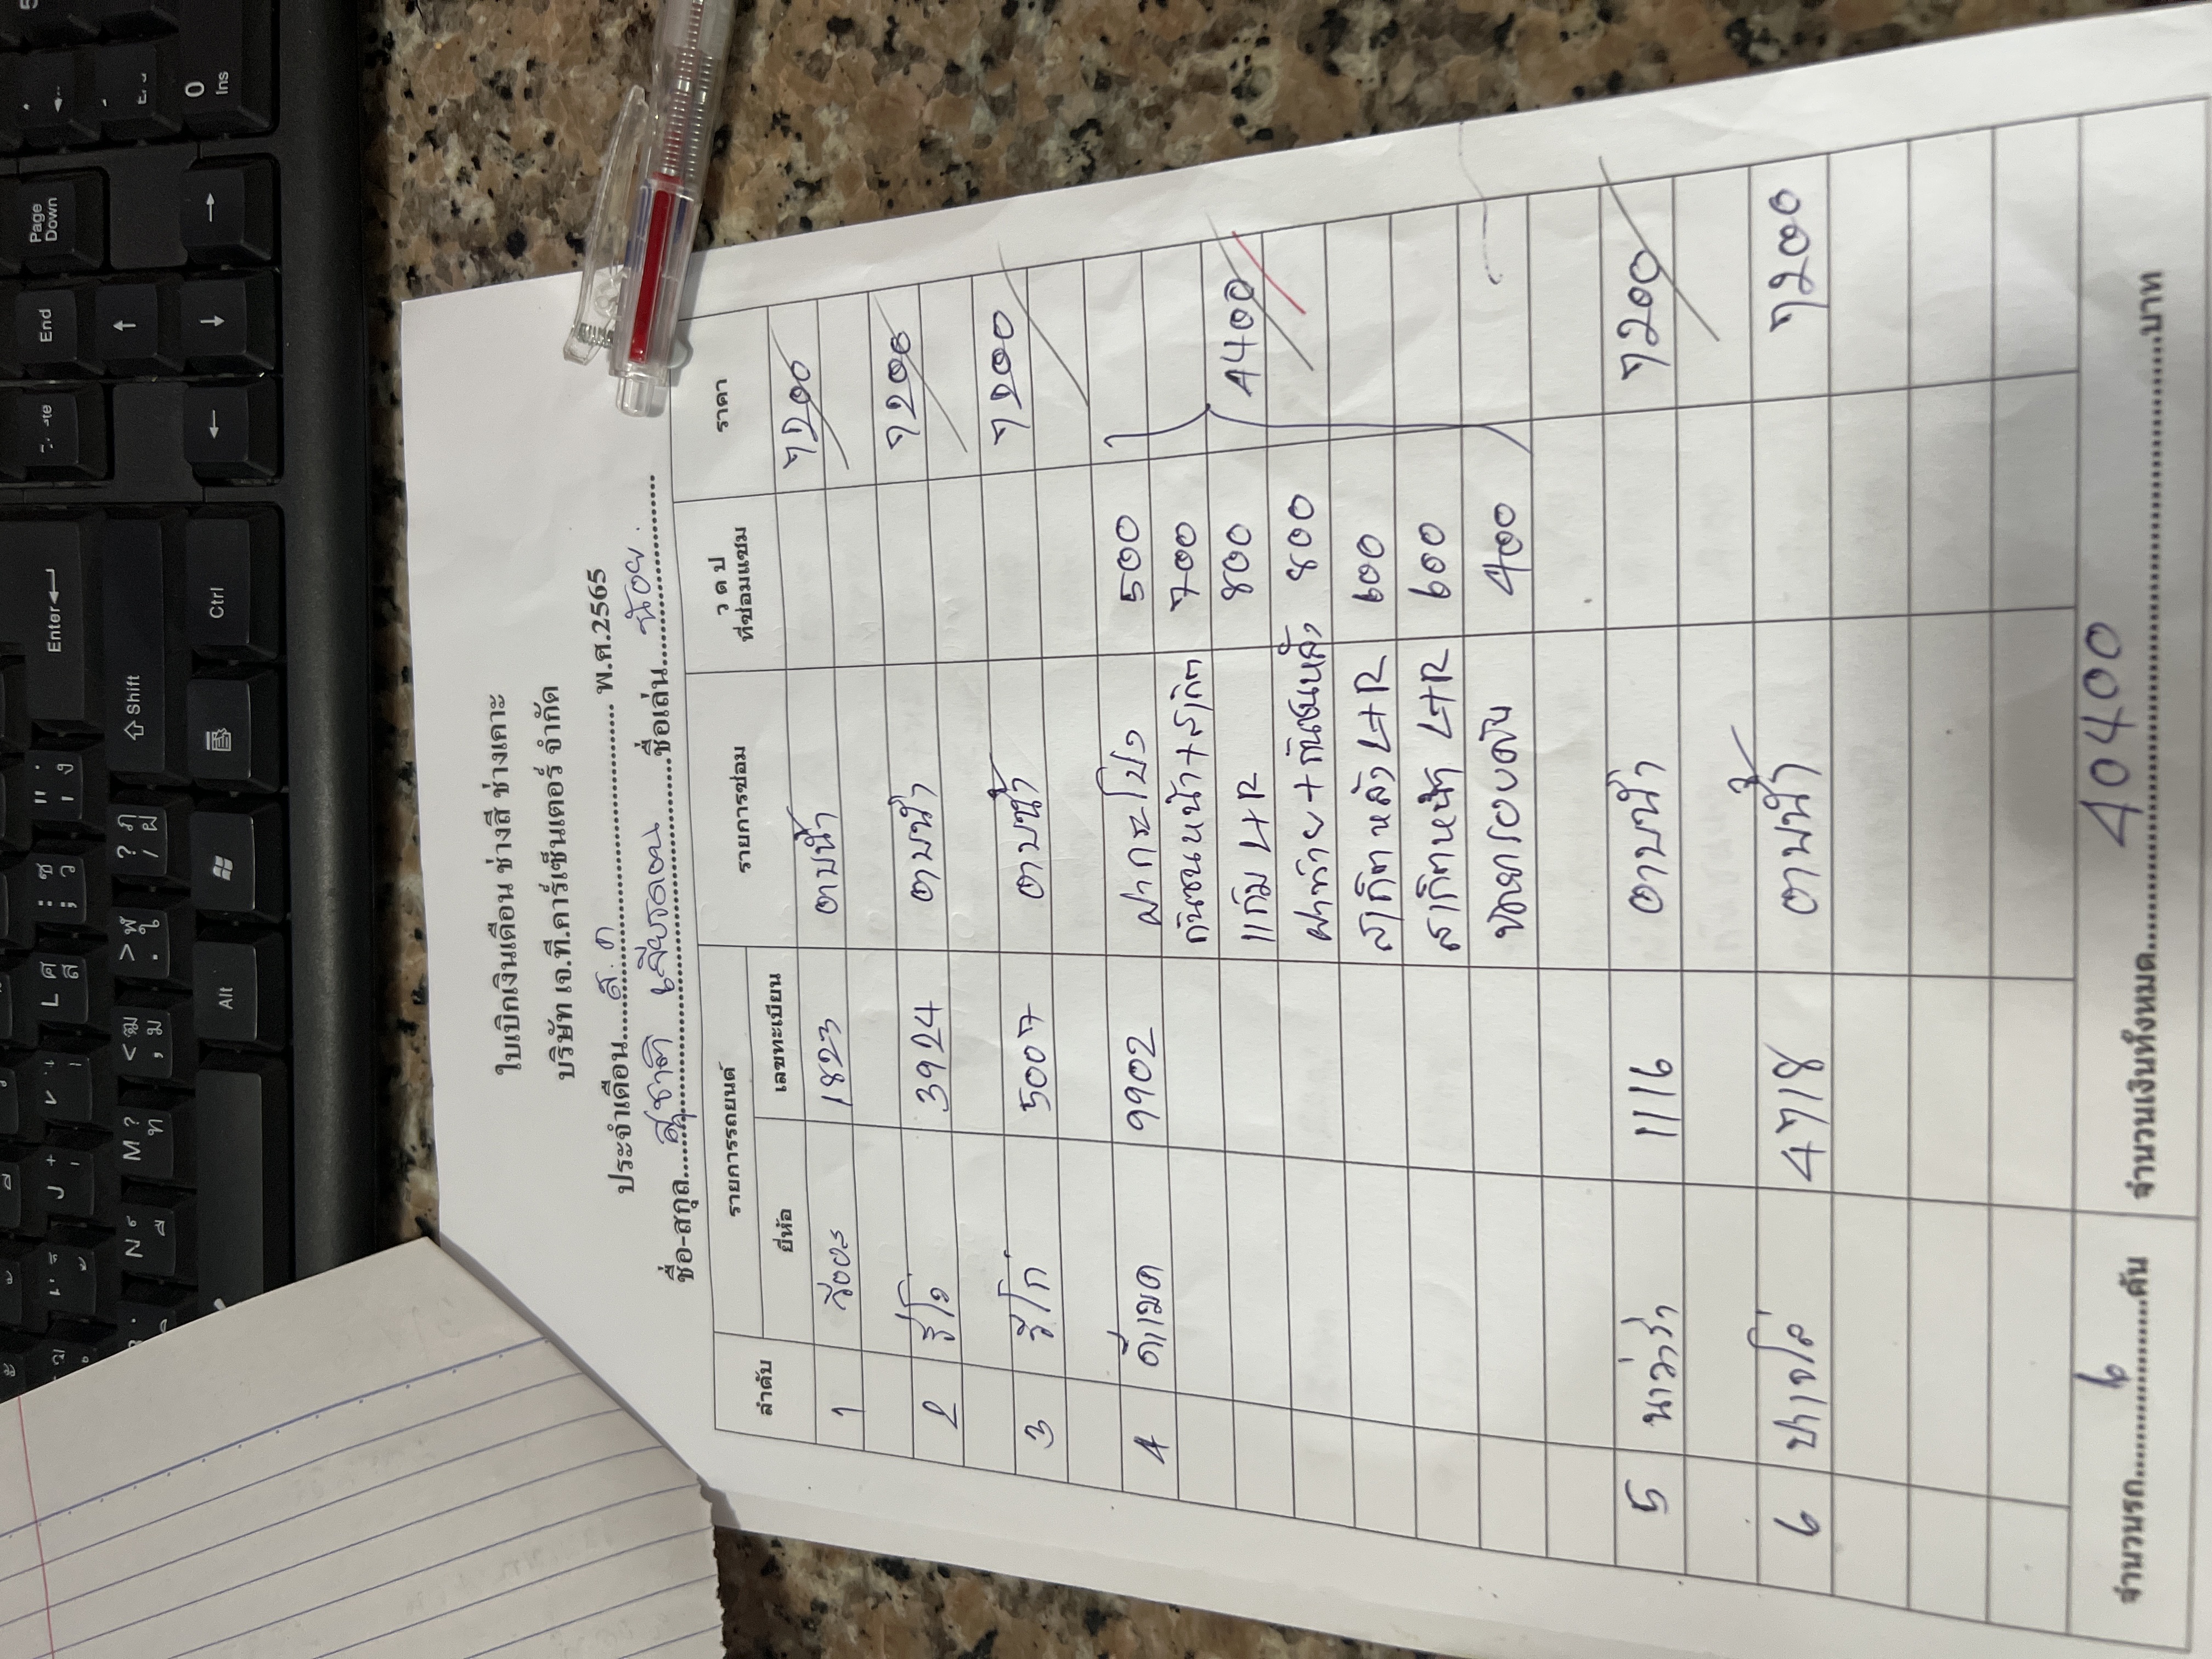 ใบเบิกเงินเดือน ช่างสี ช่างเคาะ
บริษัท เจ.ที.คาร์เซ็นเตอร์ จำกัด
ประจำเดือน ส.ค พ.ศ.2565
ชื่อ-สกุล สุชาติ ชื่อเล่น น้อย
ลำดับ รายการรถยนต์ รายการซ่อม ว ด ป ที่ซ่อมแซม ราคา
ยี่ห้อ เลขทะเบียน
1 วีออส 1823 ตาบน้ำ 7200
2 รีโว่ 3924 ตาบน้ำ 7200
3 วีโก่ 5007 ตาบน้ำ 7200
4 ดีแมค 9902 ฝากระโปง 500
กันชนหน้า+ 700
แก้ม L+R 800
ฝาท้าย+กันชนหลัง 800 4400
สเกิตหลัง L+R 600
สเกิตหน้า L+R 600
400
5 นาวาร่า 1116 ตาบน้ำ 7200
6 ปาเจโร่ 4718 ตาบน้ำ 7200
จำนวนรถ 6 คัน จำนวนเงินทั้งหมด 40400 บาท
Page Down
End
0 Ins
Enter
Shift
Ctrl
Alt